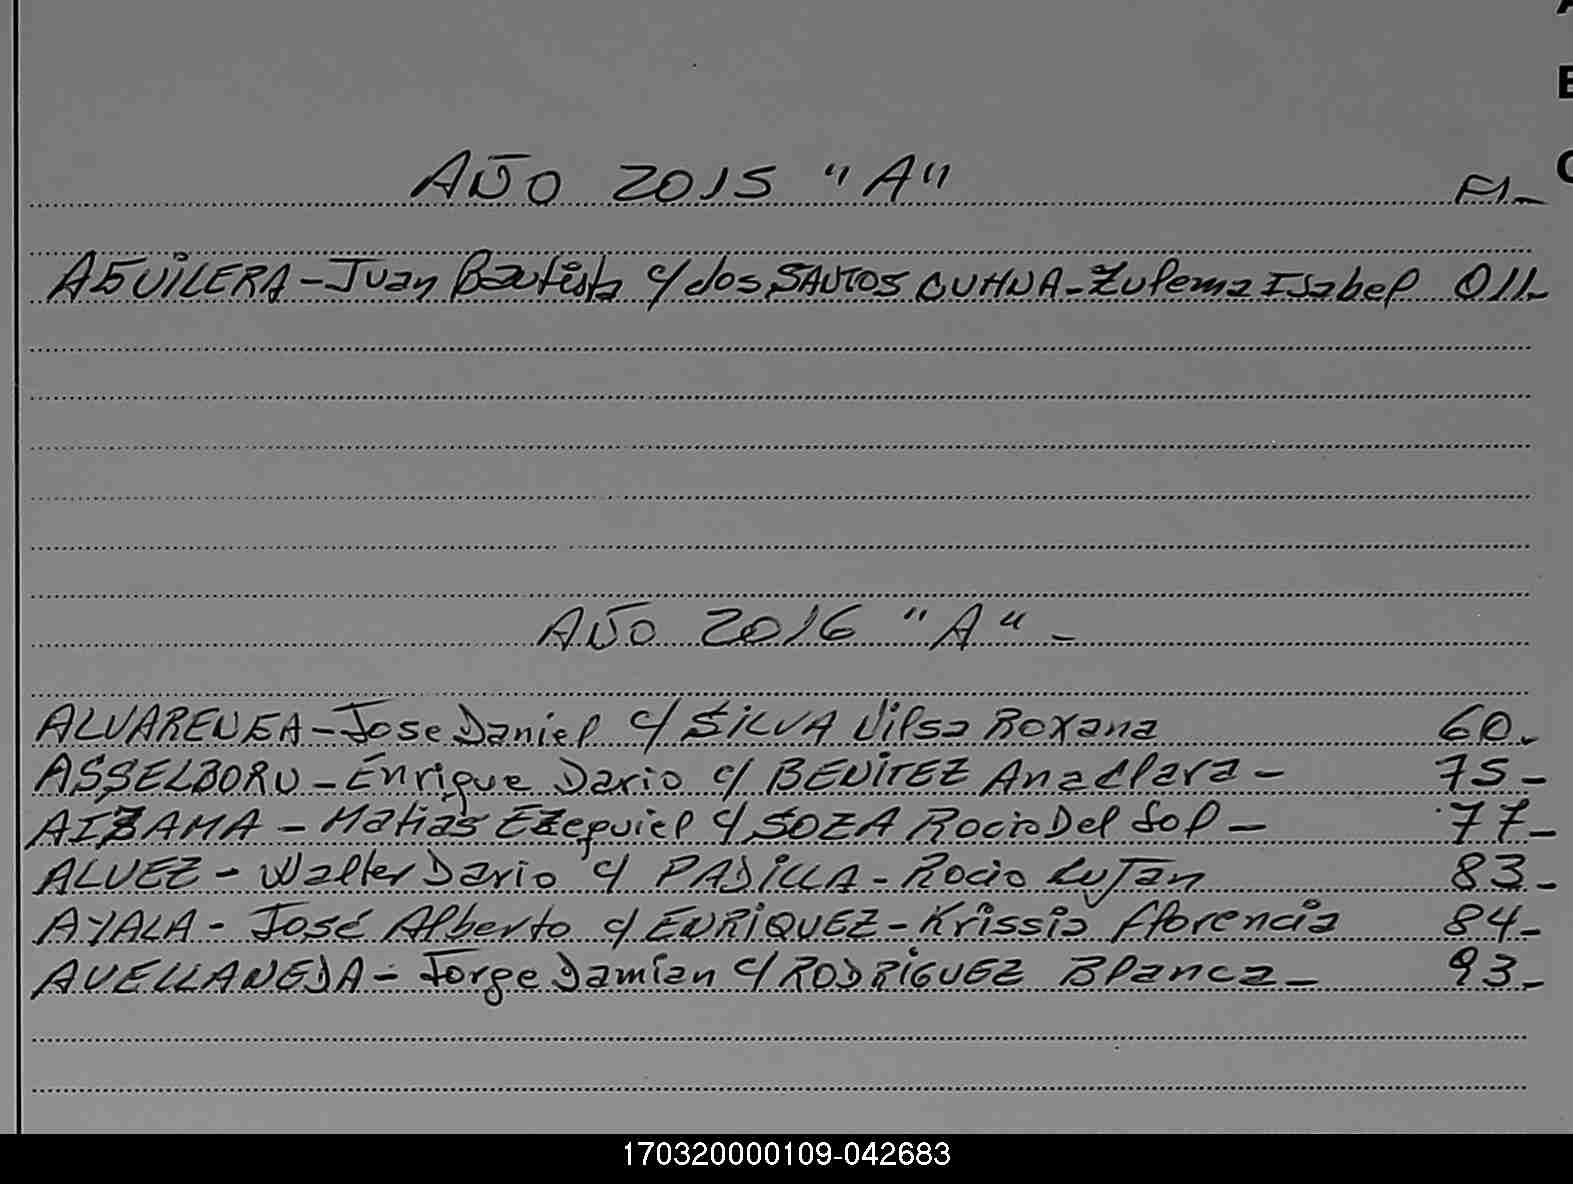 A
B
C
AÑO 2015 "A"
Fl.-
AGUILERA - Juan Bautista c/ dos SANTOS CUHNA - Zulema Isabel 011.-
AÑO 2016 "A" -
ALVARENGA - Jose Daniel c/ SILVA Nilsa Roxana 60.-
ASSELBORN - Enrique Dario c/ BENITEZ Ana Clara - 75 -
AIZAMA - Matias Ezequiel c/ SOZA Rocio Del Sol - 77 -
ALVEZ - Walter Dario c/ PADILLA - Rocio Lujan 83 -
AYALA - José Alberto c/ ENRIQUEZ - Krissia Florencia 84 -
AVELLANEDA - Jorge Damian c/ RODRIGUEZ Blanca - 93 -
170320000109-042683